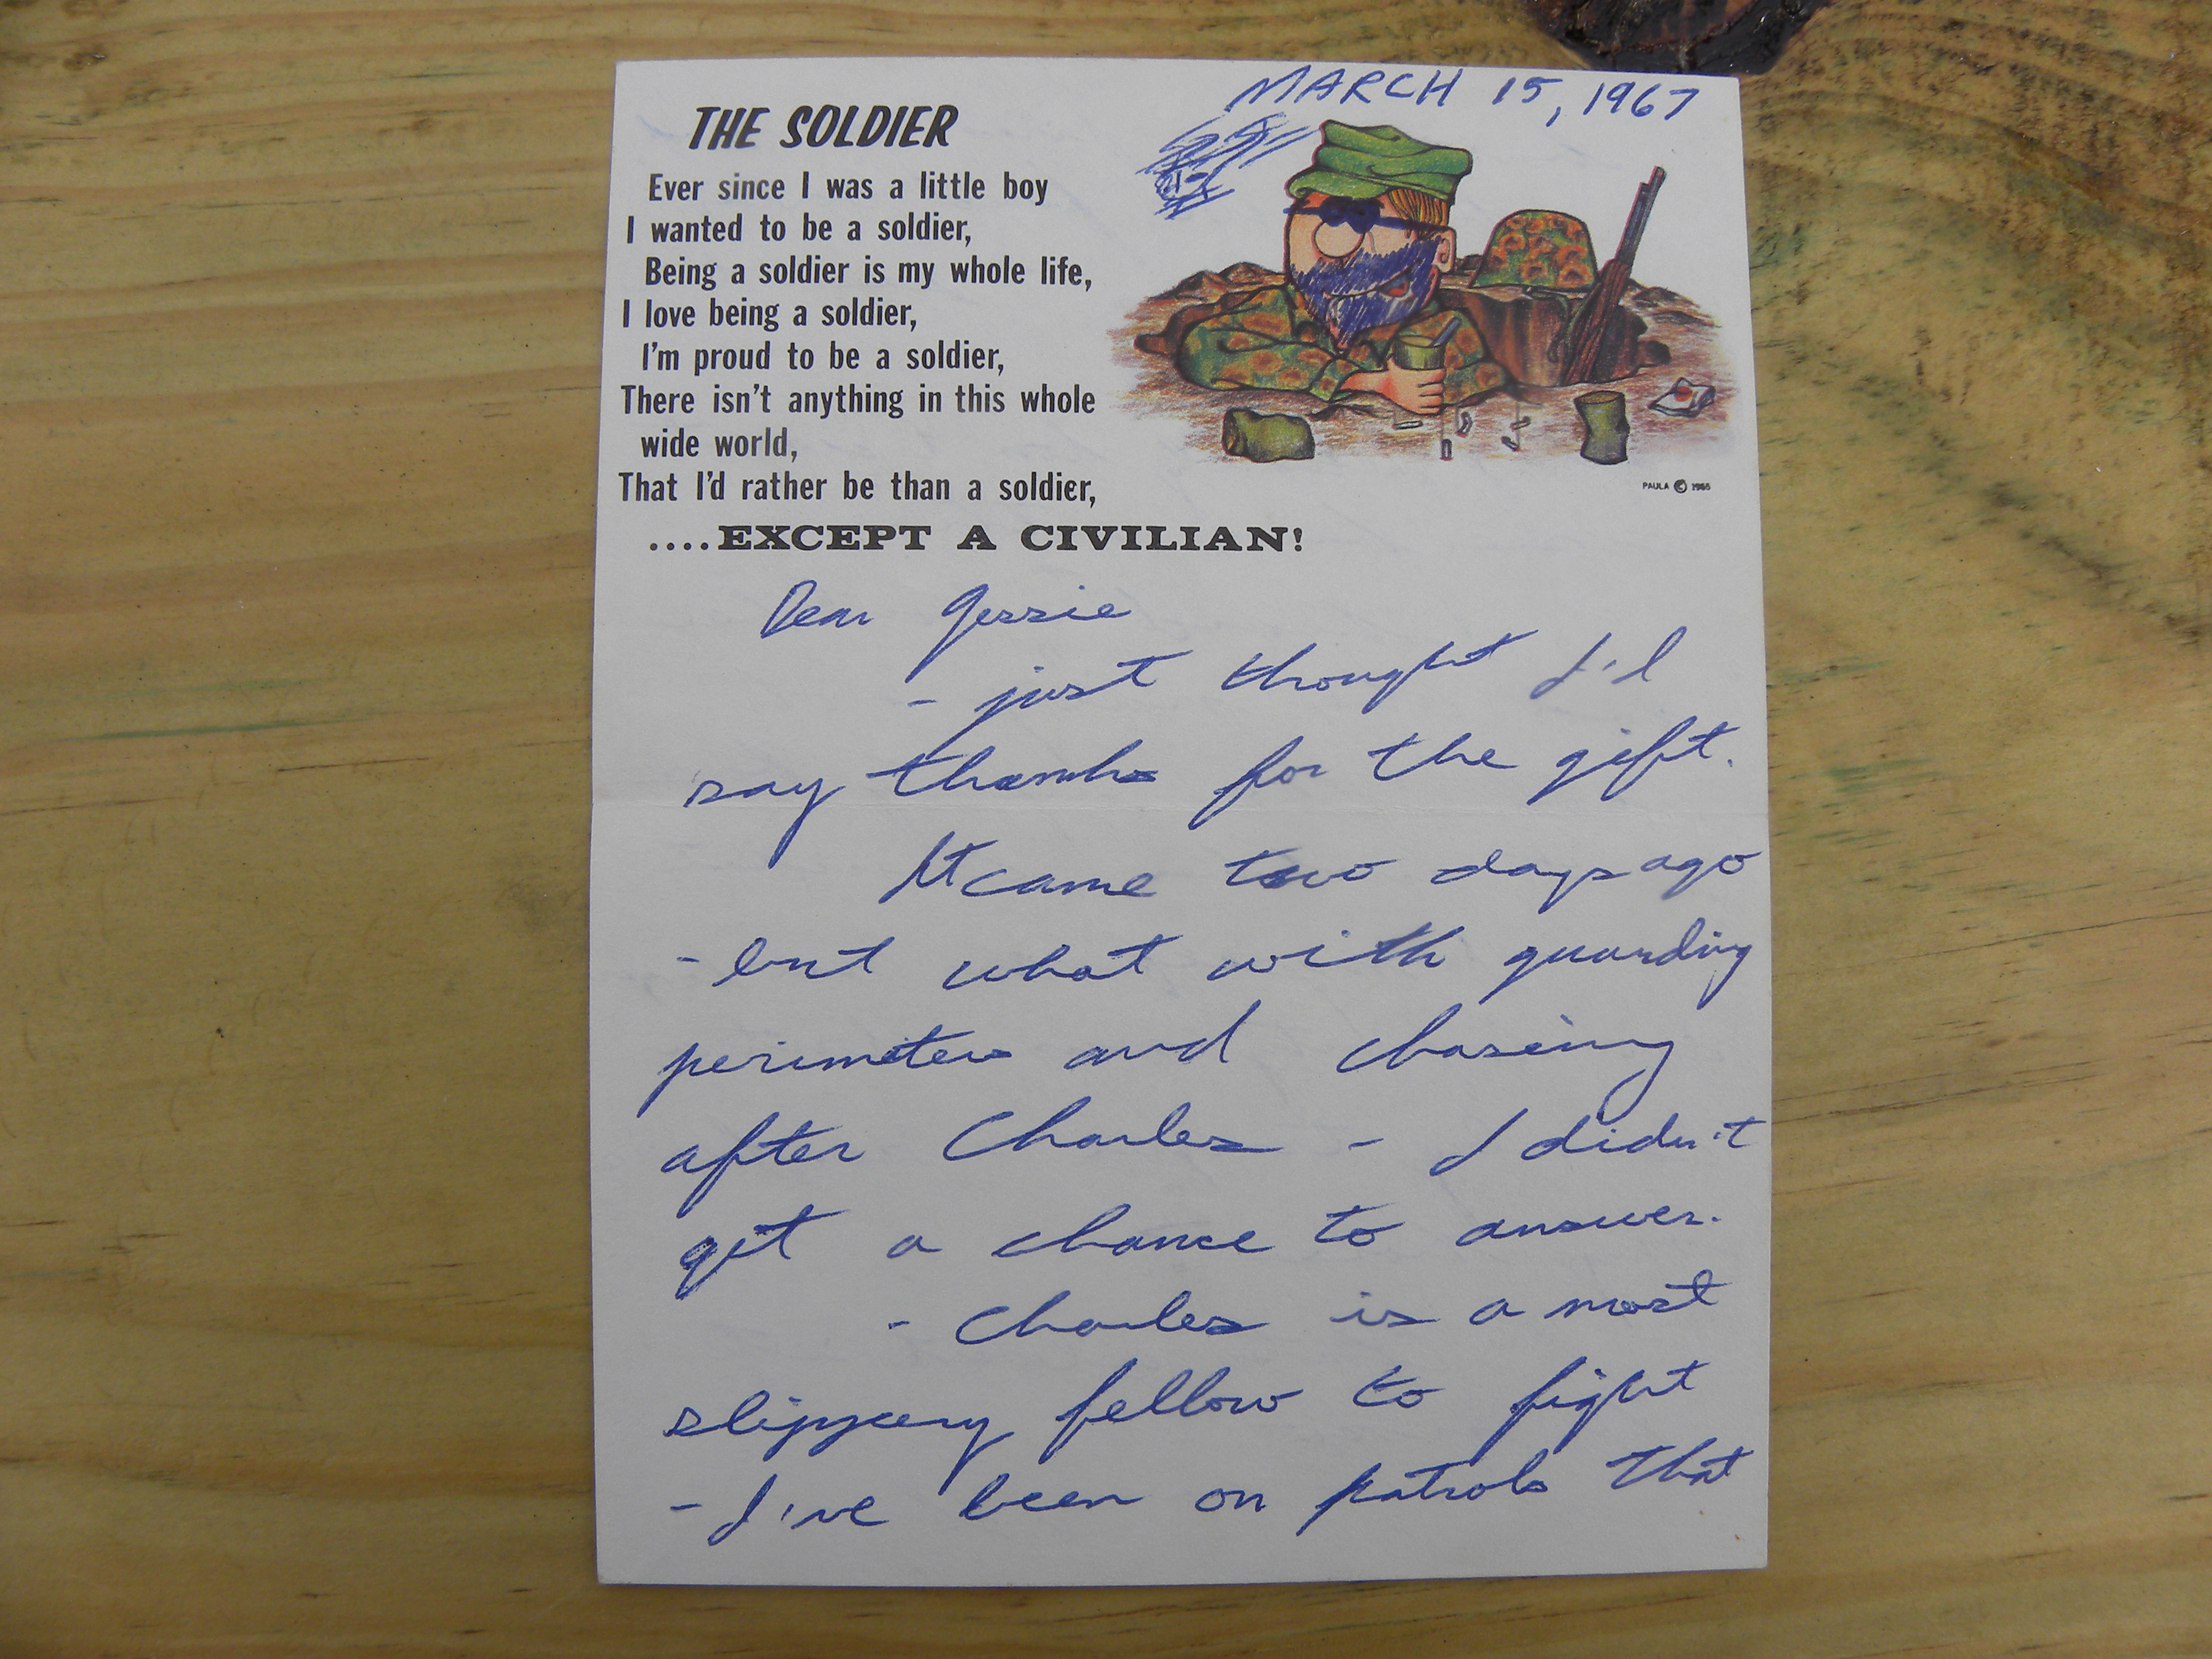 MARCH 15, 1967
THE SOLDIER
Ever since I was a little boy
I wanted to be a soldier,
Being a soldier is my whole life,
I love being a soldier,
I'm proud to be a soldier,
There isn't anything in this whole
wide world,
That I'd rather be than a soldier,
....EXCEPT A CIVILIAN!
PAULA © 1966
Dear Jessie
- just thought I'd
say thanks for the gift.
It came two days ago
- but what with guarding
perimeters and chasing
after Charles - I didn't
get a chance to answer.
- Charles is a most
slippery fellow to fight
- I've been on patrols that